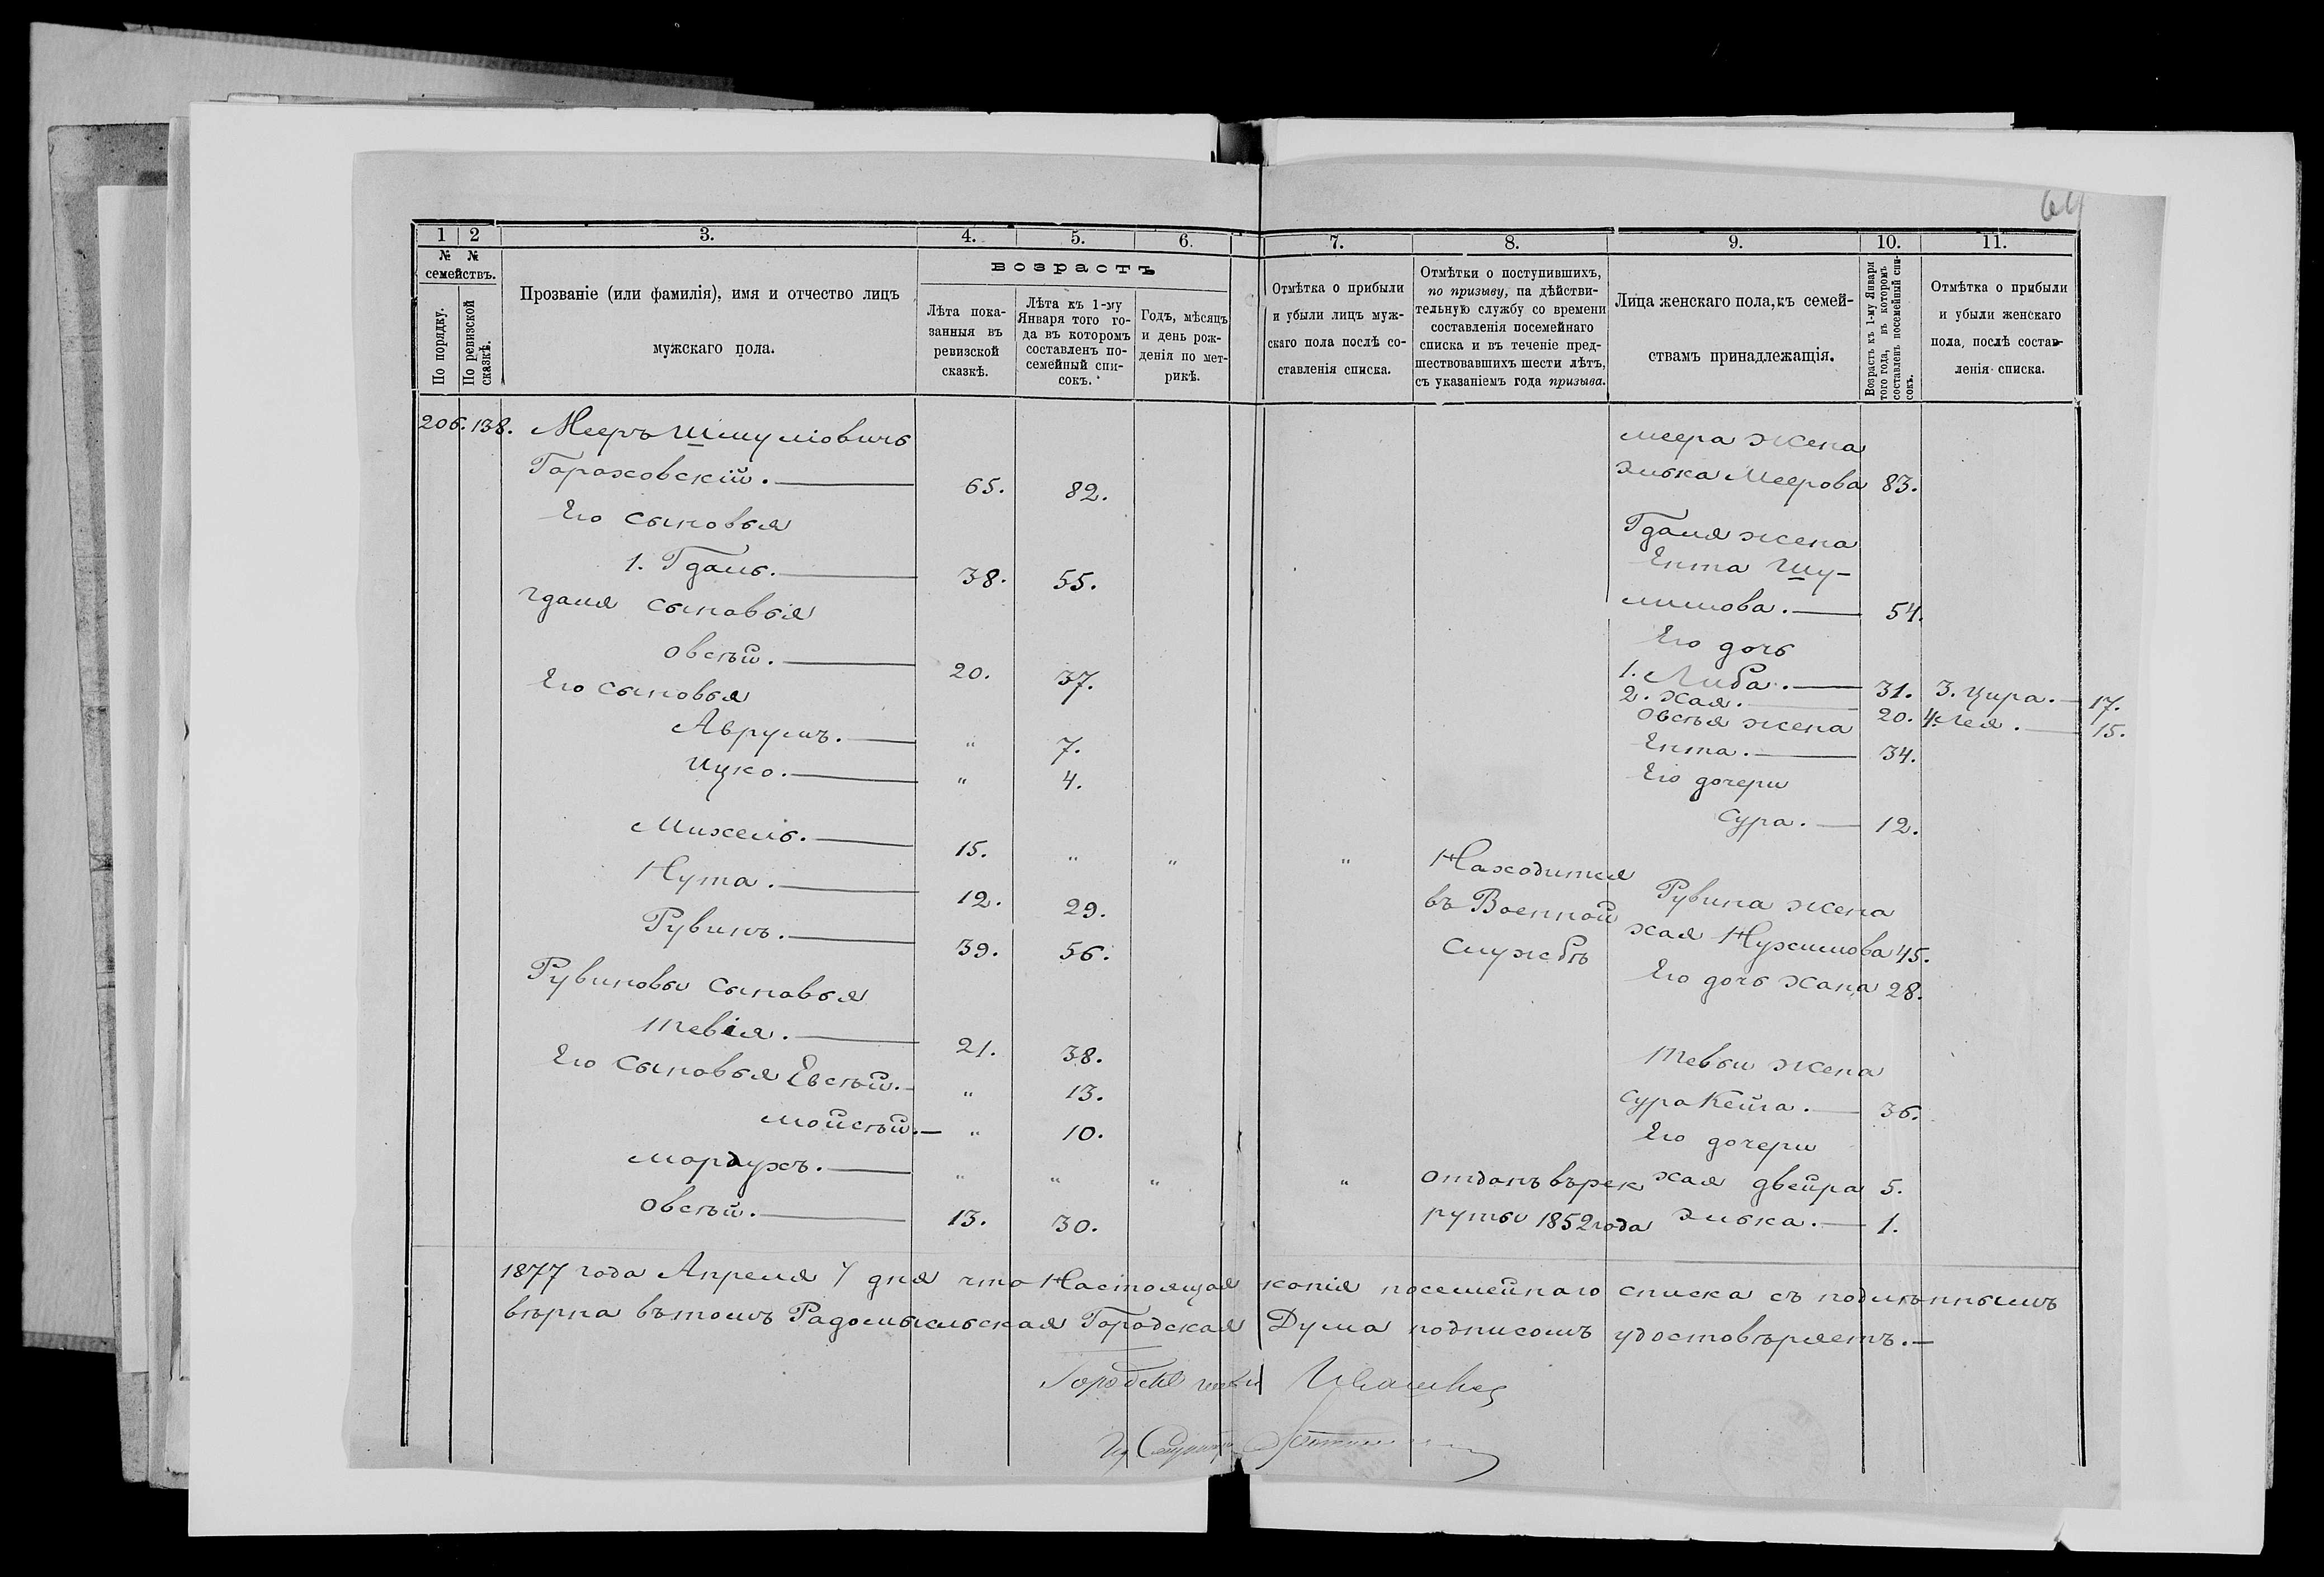 64
1 2 3. 4. 5. 6. 7. 8. 9. 10. 11.
№ № семействъ.
По порядку.
По ревизской сказкѣ.
Прозваніе (или фамилія), имя и отчество лицъ
мужскаго пола.
возрастъ
Лѣта пока-
занныя въ
ревизской
сказкѣ.
Лѣта къ 1-му
Января того го-
да въ которомъ
составленъ по-
семейный спи-
сокъ.
Годъ, мѣсяцъ
и день рож-
денія по мет-
рикѣ.
Отмѣтка о прибыли
и убыли лицъ муж-
скаго пола послѣ со-
ставленія списка.
Отмѣтки о поступившихъ,
по призыву, на дѣйстви-
тельную службу со времени
составленія посемейнаго
списка и въ теченіе пред-
шествовавшихъ шести лѣтъ,
съ указаніемъ года призыва.
Лица женскаго пола, къ семей-
ствамъ принадлежащія.
Возрастъ къ 1-му Января
того года, въ которомъ
составленъ посемейный спи-
сокъ.
Отмѣтка о прибыли
и убыли женскаго
пола, послѣ состав-
ленія списка.
206. 138. Мееръ Шмуліовичъ
Гораховскій. 65. 82.
Его сыновья
1. Гдаль. 38. 55.
Гдаля сыновья
Овсѣй. 20. 37.
Его сыновья
Аврумъ. " 7.
Ицко. " 4.
Михель. 15. " " "
Нута. 12. 29.
Рувинъ. 39. 56.
Рувиновы сыновья
Тевія. 21. 38.
Его сыновья Евсѣй. " 13.
Мойсѣй. " 10.
Мордухъ. " " " "
Овсѣй. 13. 30.
Находится
въ Военной
службѣ
отданъ върек
руты 1852 года
Меера жена
Элька Меерова 83.
Гдаля жена
Ента Шу-
лимова. 54.
Его дочь
1. Либа. 31. 3. Цира. 17.
2. Хая. 20. 4. Лея. 15.
Овсѣя жена
Ента. 34.
Его дочери
Сура. 12.
Рувина жена
Хая Нухимова 45.
Его дочь Хана 28.
Тевьи жена
Сура Кейла. 36.
Его дочери
Хая Двейра 5.
Элька. 1.
1877 года Апреля 7 дня что Настоящая копія посемейнаго списка съ подлѣннымъ
вѣрна вътомъ Радомысльская Городская Дума подписомъ удостовѣряетъ.